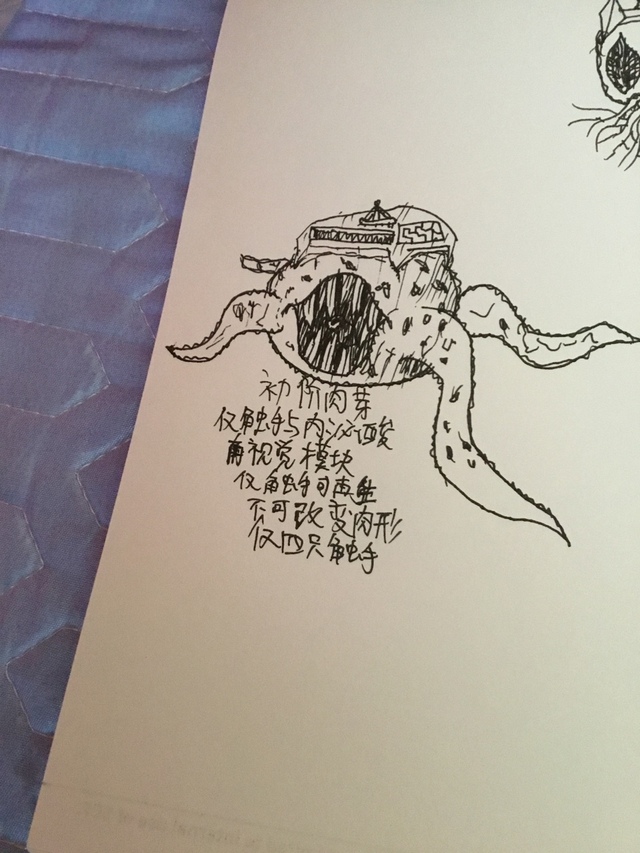 初阶肉芽
仅触手与内泌酸
有视觉模块
仅触手可
不可改变肉形
仅四只触手